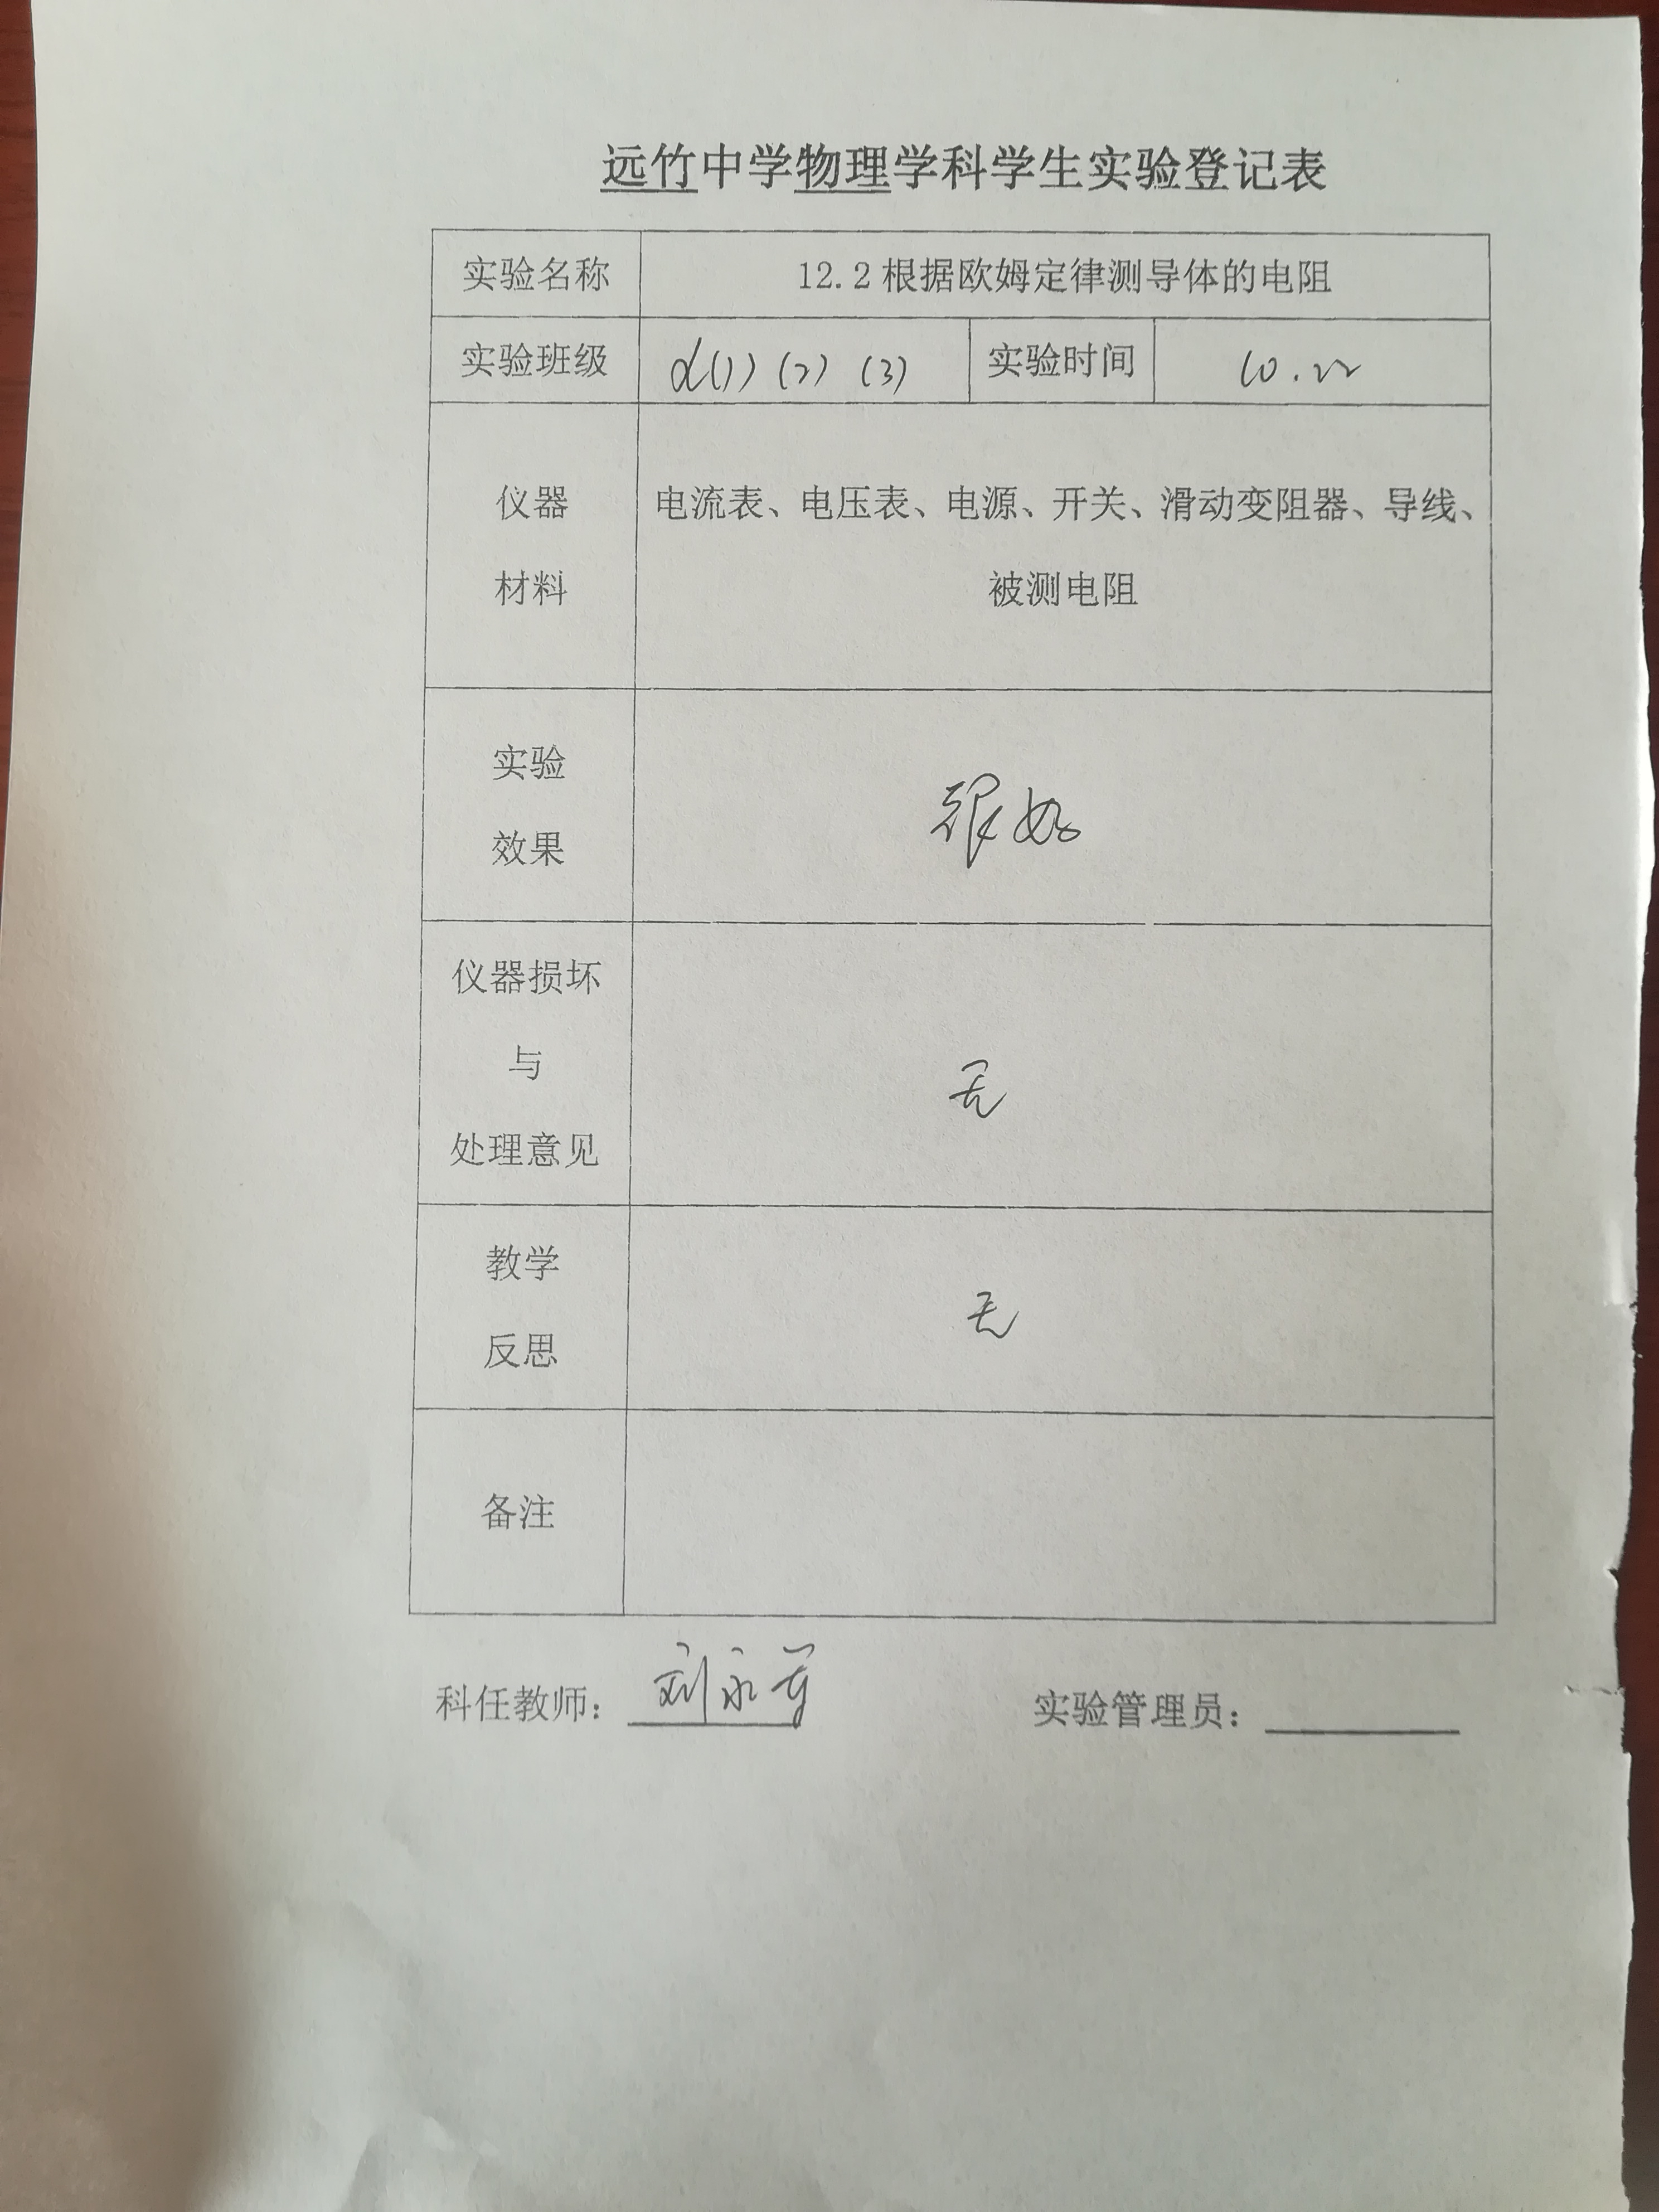 远竹中学物理学科学生实验登记表
实验名称 12.2根据欧姆定律测导体的电阻
实验班级 (1) (2) (3) 实验时间 10.22
仪器
材料
电流表、电压表、电源、开关、滑动变阻器、导线、
被测电阻
实验
效果
很好
仪器损坏
与
处理意见
无
教学
反思
无
备注
科任教师：刘永 实验管理员：